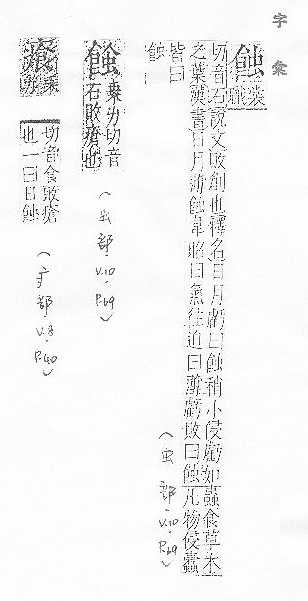 字彙
蝕
乘職
切音石說文敗創也釋名日月虧曰蝕稍小侵虧如蟲食草木
之葉漢書日月薄蝕韋昭曰氣往迫曰薄虧敗曰蝕凡物侵蠹
皆曰
蝕
(虫部.V.10.P.69)
乘力切音
石敗瘡也
(虫部.V.10.P.69)
乘力
切音食敗瘡
也一曰日蝕
(疒部.V.8.P.40)